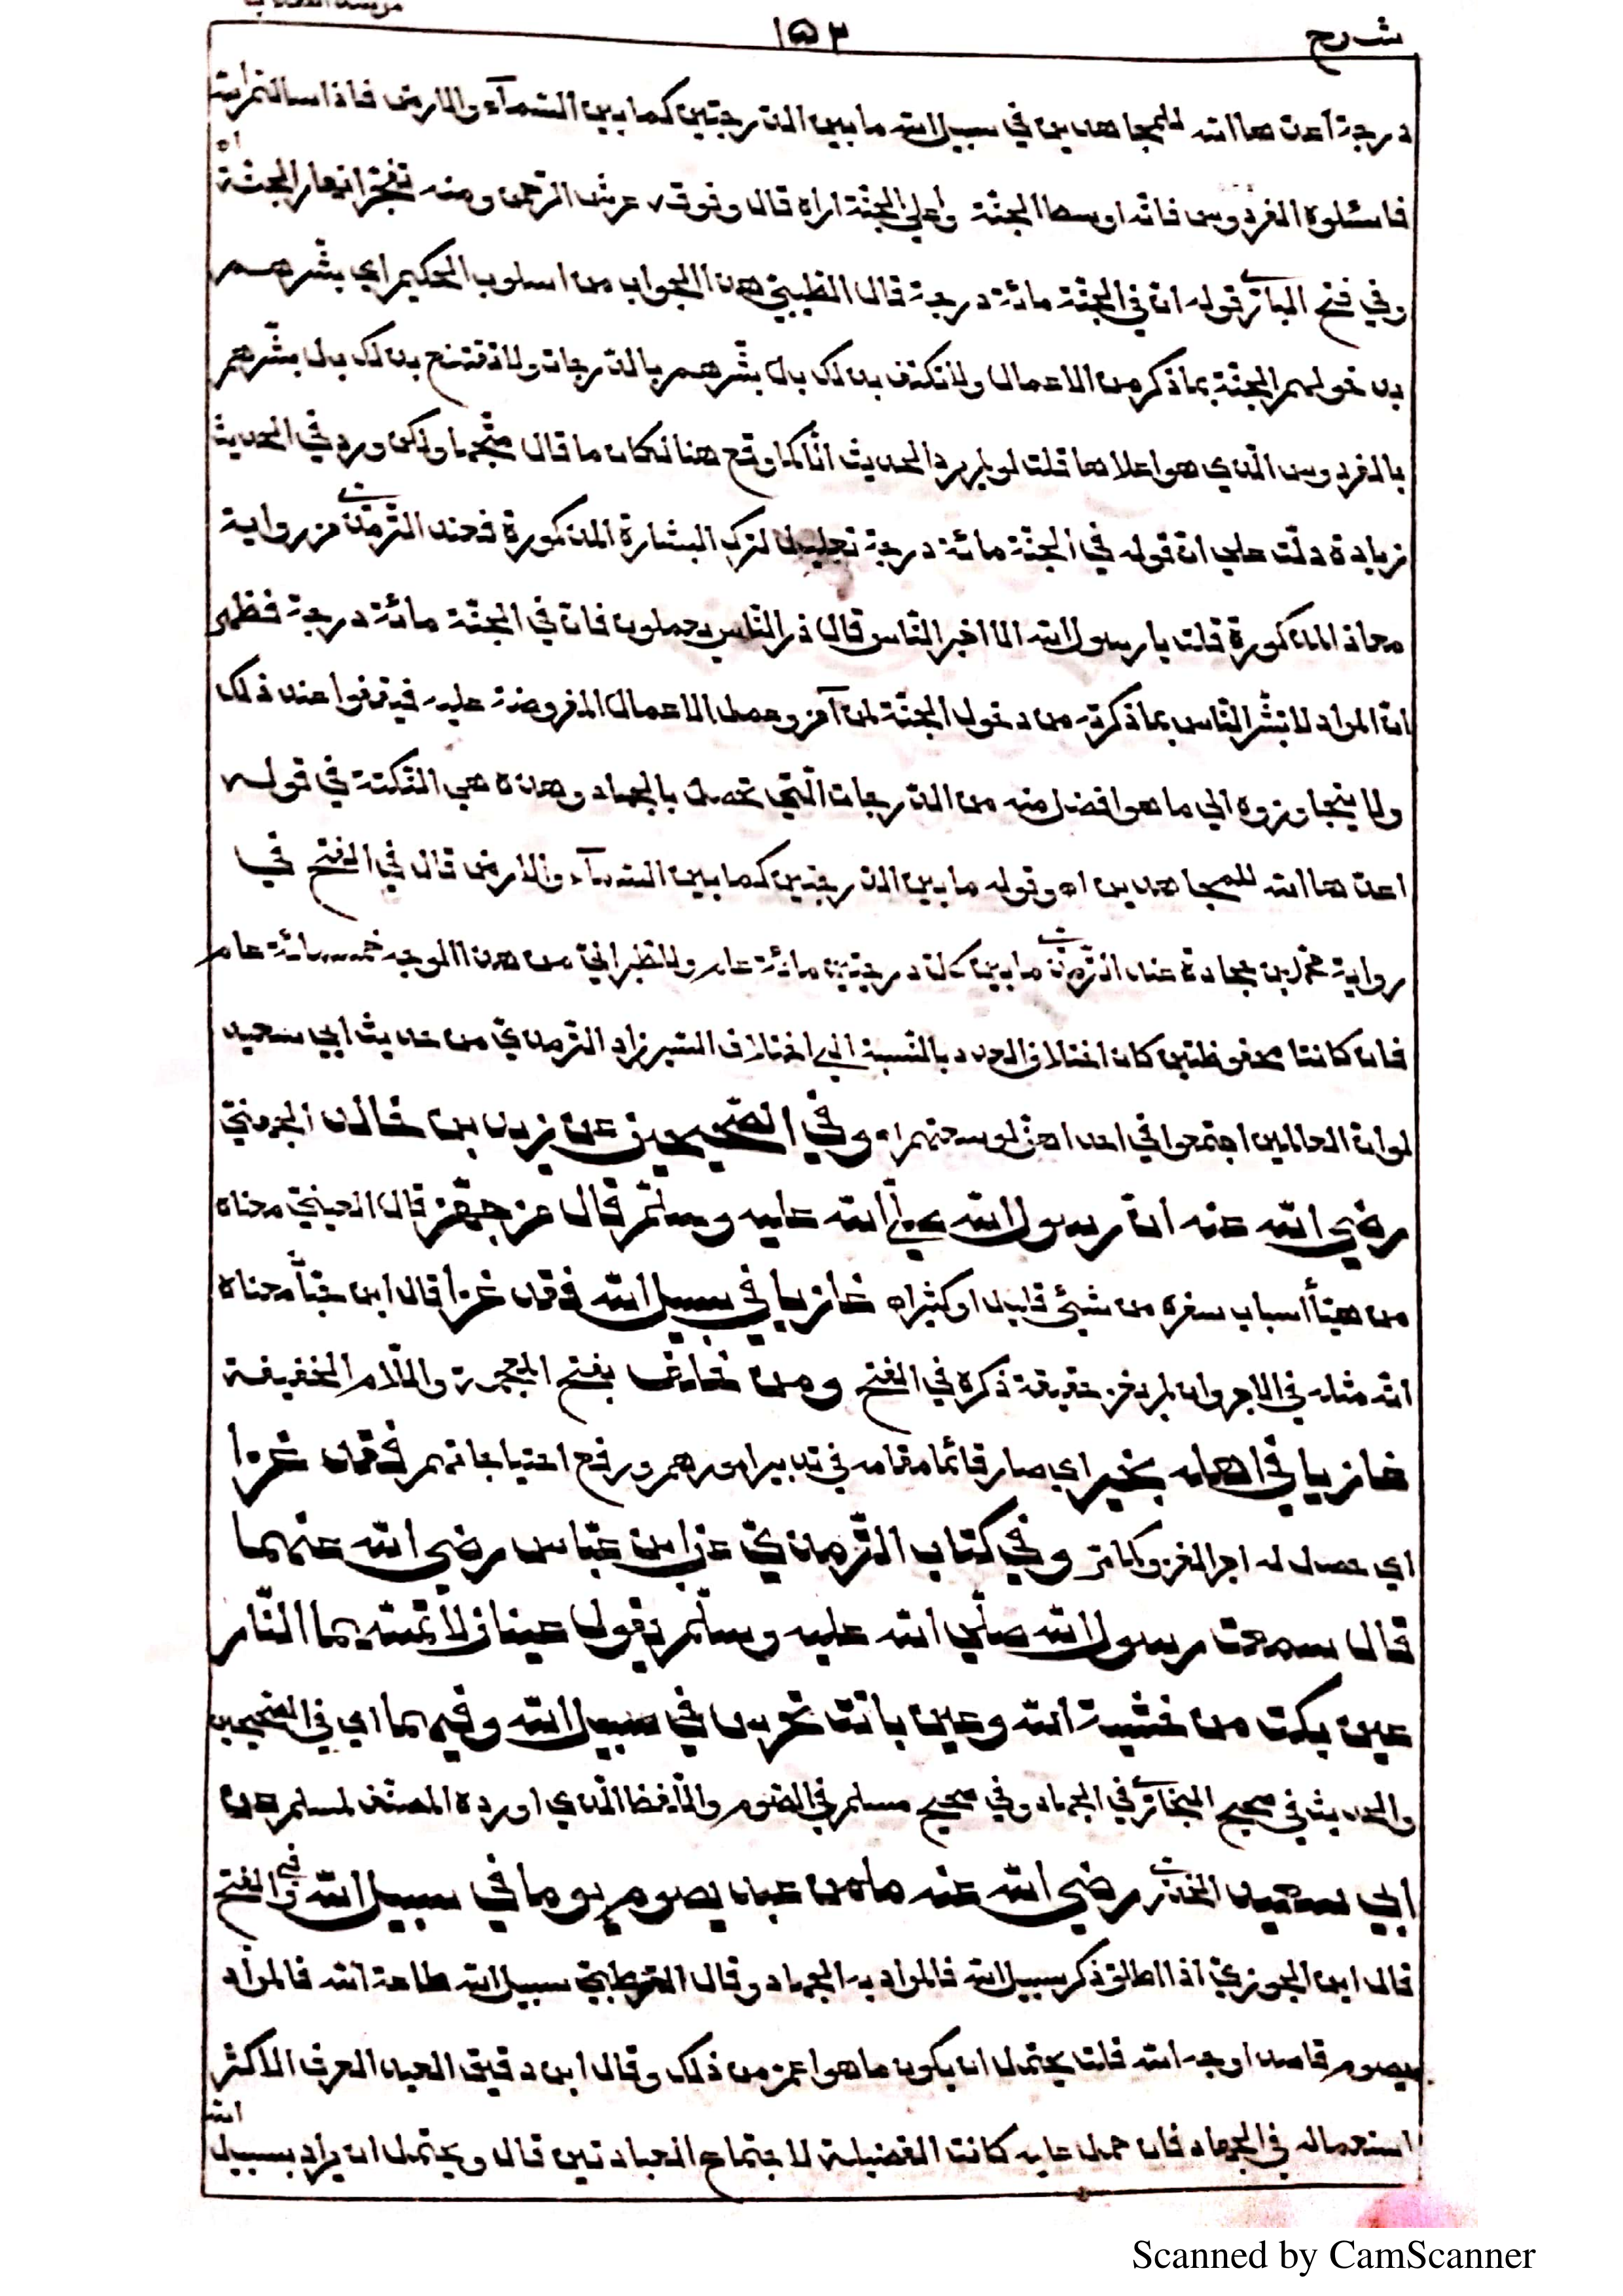 شرح
١٥٣
درجة اعدها الله للمجاهدين في سبيل الله ما بين الدرجتين كما بين السمآء والارض فاذا سالتم الله
فاسئلوه الفردوس فانه اوسط الجنة واعلي الجنة اراه قال وفوقه عرش الرحمن ومنه تفجر انهار الجنة اه
وفي فتح الباري قوله ان في الجنة مائة درجة قال الطيبي هذا الجواب من اسلوب الحكيم اي بشرهم
بدخولهم الجنة بما ذكر من الاعمال ولا تكتف بذلك بل بشرهم بالدرجات ولا تقتنع بذلك بل بشرهم
بالفردوس الذي هو اعلاها قلت لو لم يرد الحديث الا كما وقع هنا لكان ما قال متجها ولكن ورد في الحديث
زيادة دلت علي ان قوله في الجنة مائة درجة تعليل لترك البشارة المذكورة فعند الترمذي من رواية
معاذ المذكورة قلت يا رسول الله الا اخبر الناس قال ذر الناس يعملون فان في الجنة مائة درجة فظهر
ان المراد لا تبشر الناس بما ذكرته من دخول الجنة لمن آمن وعمل الاعمال المفروضة عليه فيقفوا عند ذلك
ولا يتجاوزوه الي ما هو افضل منه من الدرجات التي تحصل بالجهاد وهذه هي النكتة في قوله
اعدها الله للمجاهدين اه وقوله ما بين الدرجتين كما بين السمآء والارض قال في الفتح في
رواية محمد بن جحادة عند الترمذي ما بين كل درجتين مائة عام وللطبراني من هذا الوجه خمسمائة عام
فان كانتا محفوظتين كان اختلاف العدد بالنسبة الي اختلاف السير زاد الترمذي من حديث ابي سعيد
لو ان العالمين اجتمعوا في احداهن لوسعتهم اه وفي الصحيحين عن زيد بن خالد الجهني
رضي الله عنه ان رسول الله صلي الله عليه وسلم قال من جهز قال العيني معناه
من هيأ اسباب سفره من شيئ قليل او كثير اه غازيا في سبيل الله فقد غزا قال ابن حبان معناه
انه مثله في الاجر وان لم يغز حقيقة ذكره في الفتح ومن خلف بفتح المعجمة واللام الخفيفة
غازيا في اهله بخير اي صار قائما مقامه في تدبير امورهم ورفع احتياجاتهم فقد غزا
اي حصل له اجر الغزو كما مر وفي كتاب الترمذي عن ابن عباس رضي الله عنهما
قال سمعت رسول الله صلي الله عليه وسلم يقول عينان لا تمسهما النار
عين بكت من خشية الله وعين باتت تحرس في سبيل الله وفيهما اي في الصحيحين
والحديث في صحيح البخاري في الجهاد وفي صحيح مسلم في الصوم واللفظ الذي اورده المصنف لمسلم عن
ابي سعيد الخدري رضي الله عنه ما من عبد يصوم يوما في سبيل الله وفي الفتح
قال ابن الجوزي اذا اطلق ذكر سبيل الله فالمراد به الجهاد وقال القرطبي سبيل الله طاعة الله فالمراد
من يصوم قاصدا وجه الله قلت يحتمل ان يكون ما هو اعم من ذلك وقال ابن دقيق العيد العرف الاكثر
استعماله في الجهاد فان حمل عليه كانت الفضيلة لاجتماع العبادتين قال ويحتمل ان يراد بسبيل الله
Scanned by CamScanner